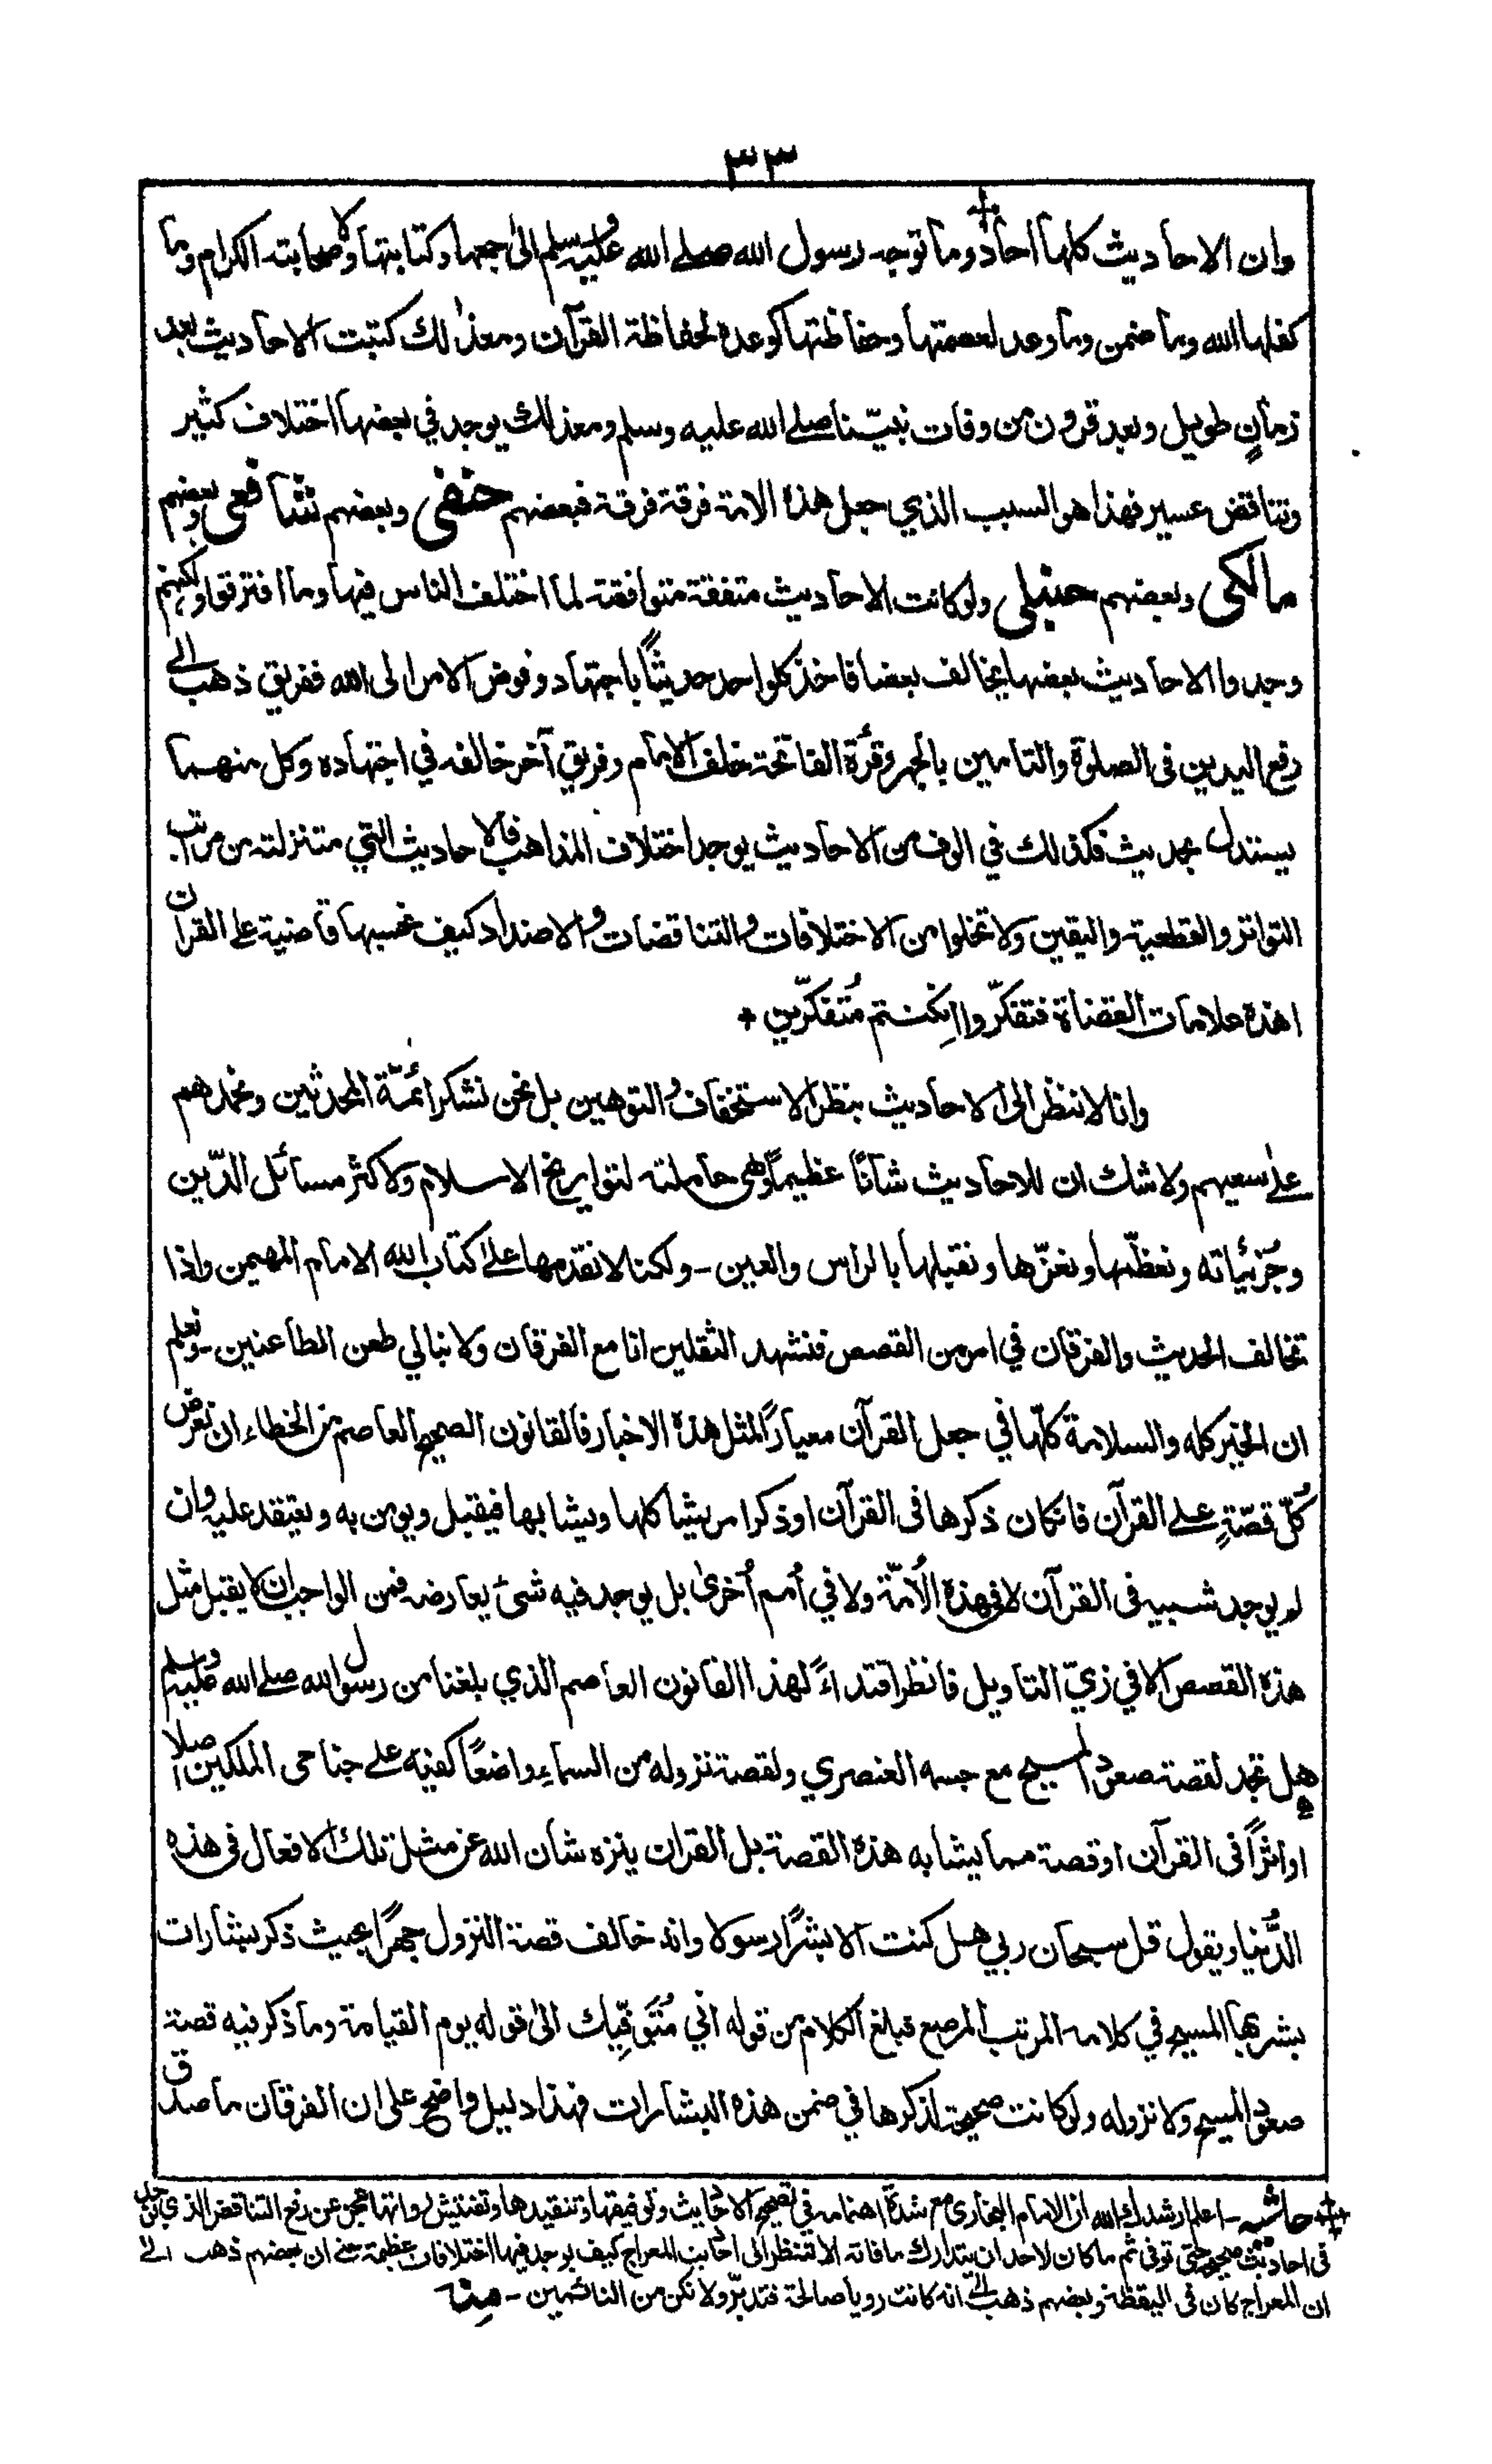 ٣٣
وان الاحاديث كلها آحاد وما توجه رسول الله صلى الله عليه وسلم الى جمعها وكتابتها ولا صحابته الكرام وما
كفلها الله وما ضمن وما وعد لعصمتها وحفاظتها كوعده لحفاظة القرآن ومعذلك كتبت الاحاديث بعد
زمانٍ طويل وبعد قرون من وفات نبيّنا صلے الله عليه وسلم ومعذلك يوجد في بعضها اختلاف كثير
وتناقض عسير فهذا هو السبب الذي جعل هذه الامة فرقة فرقة فبعضهم حنفى وبعضهم شافعى وبعضهم
مالكى وبعضهم حنبلى ولو كانت الاحاديث متفقة متوافقة لما اختلف الناس فيها وما افترقوا ولكنهم
وجدوا الاحاديث بعضها يخالف بعضا فاخذ كلواحد حديثًا باجتهاد وفوض الامر الى الله ففريق ذهب الے
رفع اليدين فى الصلوة والتامين بالجهر وقرٔة الفاتحة خلف الامام وفريق آخر خالفه في اجتهاده وكل منهما
يستدل بحديث فكذلك في الوف من الاحاديث يوجد اختلاف المذاهب فالاحاديث التي متنزلته من مراتب
التواتر والقطعية واليقين ولا تخلوا من الاختلافات والتناقضات والاضداد كيف نحسبها قاضية على القرآن
اهذه علامات القضاة فتفكّروا ان كنتم مُتفكّرين ٭
وانا لا ننظر الى الاحاديث بنظر الاستخفاف والتوهين بل نحن نشكر ائمّة المحدثين ونحمدهم
علے سعيهم ولا شك ان للاحاديث شانًا عظيمًا وهى حاملته لتواريخ الاسلام ولاكثر مسائل الدّين
وجُزئياته ونعظّمها ونعزّها ونقبلها بالراس والعين ـ ولكنا لا نقدمها علے كتاب الله الامام المهيمن واذا
تخالف الحديث والفرقان في امر من القصص فنشهد الثقلين انا مع الفرقان ولا نبالي طعن الطاعنين ـ ونعلم
ان الخير كله والسلامة كلّها في جعل القرآن معيارًا لمثل هذه الاخبار فالقانون الصحيح العاصم من الخطاء ان نعرض
كُلّ قصّةٍ علے القرآن فانكان ذكرها فى القرآن او ذكر امر يشاكلها ويشابها فيقبل ويومن به ويعتقد عليه وان
لم يوجد شبيه فى القرآن لا فى هذه الأمّة ولا في أمم أخرى بل يوجد فيه شىٔ يعارضه فمن الواجب ان لا يقبل مثل
هذه القصص الا في زيّ التاويل فانظر اقتداءً لهذا القانون العاصم الذي بلغنا من رسول الله صلے الله عليه وسلم
هل تجد لقصة صعود المسيح مع جسمه العنصري ولقصة نزوله من السماء واضعًا كفيه علے جناحى الملكين اصلًا
او اثرًا فى القرآن او قصة مما يشابه هذه القصة بل القرآن ينزه شان الله عن مثل تلك الافعال فى هذه
الدُّنيا ويقول قل سبحان ربي هل كنت الا بشرًا رسولا وانه خالف قصة النزول جهرًا بحيث ذكر بشارات
بشر بها المسيح في كلامه المرتب المرصع فبلغ الكلام من قوله اني مُتَوَفِّيك الى قوله يوم القيامة وما ذكر فيه قصة
صعود المسيح ولا نزوله ولو كانت صحيحة لذكرها في ضمن هذه البشارات فهذا دليل واضح على ان الفرقان ما صدق
حاشيه ـ اعلم ارشدك الله ان الامام البخارى مع شدّة اهتمامه في تصحيح الاحاديث وتوفيقها وتنقيدها وتفتيش رواتها عجز عن رفع التناقض الذي يوجد
فى احاديث صحيحه حتى توفى ثم ما كان لاحد ان يتدارك ما فاته الا تنظر الى احاديث المعراج كيف يوجد فيها اختلافات عظيمة حتے ان بعضهم ذهب الے
ان المعراج كان فى اليقظة وبعضهم ذهب الے انه كانت رويا صالحة فتدبّر ولا تكن من النائمين ـ منه